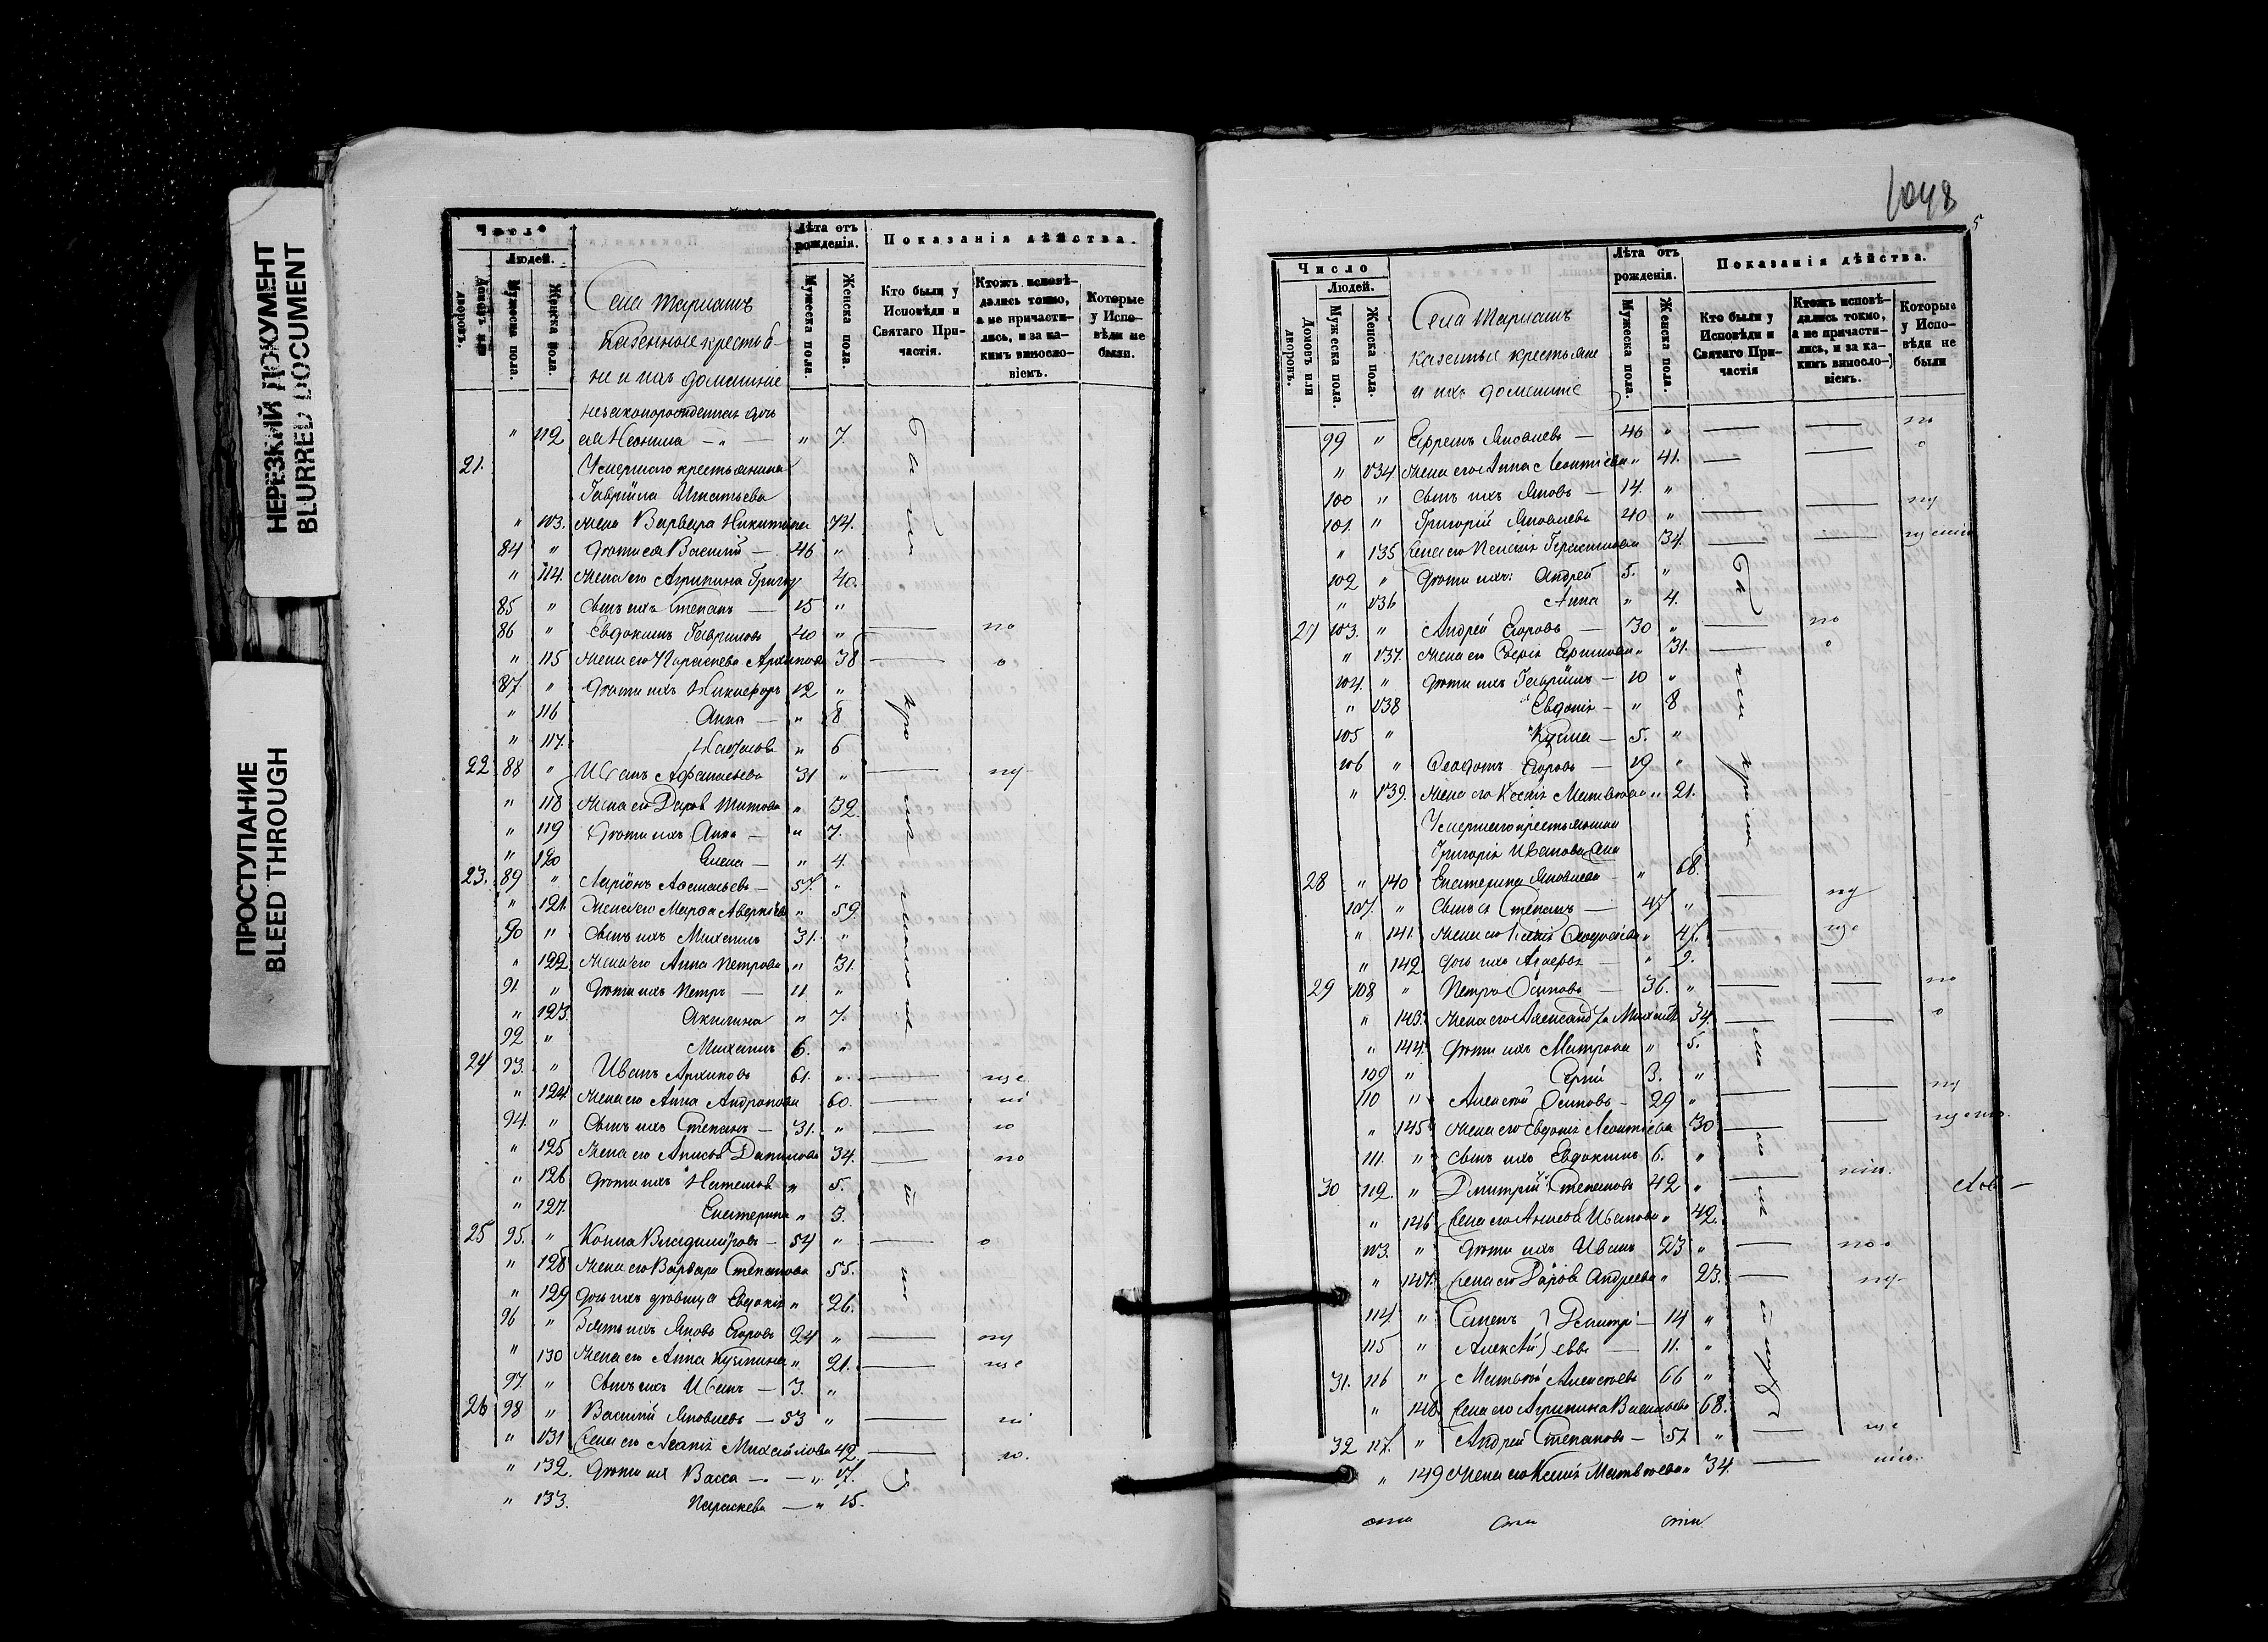 НЕРЕЗКИЙ ДОКУМЕНТ
BLURRED DOCUMENT
ПРОСТУПАНИЕ
BLEED THROUGH
Число
Людей.
Домовъ или дворовъ.
Мужеска пола.
Женска пола.
Села
Казенные крестья-
не и ихъ домашніе
Лѣта отъ рожденія.
Мужеска пола.
Женска пола.
Показанія дѣйства.
Кто были у Исповѣди и Святаго Причастія.
Ктожъ исповѣ-
дались токмо,
а не причасти-
лись, и за ка-
кимъ виносло-
віемъ.
Которые
у Испо-
вѣди не
были.
незаконорожденная дочь
" 112 ея Неонила — " — " 7.
21. Умершаго крестьянина
Гавріила Игнатьева
" 113. жена Варвара Никитина 74.
84 " дѣти ея Василій — 46 "
" 114. Жена его Агрипина Григор 40.
85 " Сынъ ихъ Степанъ — 15 "
86 " Евдокимъ Гавриловъ 40 " — по
" 115 Жена его Параскева Архипова 38 — о
87 " Дѣти ихъ Никифоръ 12 "
" 116 Анна — " 8
" 117. " 6
22 88 " Иванъ Афанасьевъ 31 " —
" 118 Жена его Дарья Титова " 32.
" 119 Дѣти ихъ Анна — " 7.
" 120 Елена — " 4.
23. 89 " Ларіонъ Афанасьевъ — 57. "
" 121. Жена его Марфа Аверкіева " 59.
90 " Сынъ ихъ Михаилъ 31. "
" 122. Жена его Анна Петрова " 31.
91. " Дѣти ихъ Петръ — 11 "
" 123. Акилина " 7.
92 " Михаилъ 6. "
24 93. " Иванъ Архиповъ 61. " —
" 124 Жена его Анна Андронова 60. —
94. " Сынъ ихъ Степанъ — 31. " —
" 125 Жена его Анисья Данилова 34. — по
" 126 Дѣти ихъ Наталья " 5.
" 127. Екатерина " 3.
25 95. " Козма Владиміровъ — 54 " — о
" 128 Жена его Варвара Степанова 55.
" 129 Дочь ихъ дѣвица Евдокія " 26.
96 " Зять ихъ Яковъ Егоровъ 24 " —
" 130 Жена его Анна Кузмина " 21. —
97. " Сынъ ихъ Иванъ — 3. "
26 98 " Василій Яковлевъ — 53 " —
" 131 Жена его Михайлова 42. —
" 132. Дѣти ихъ Васса — " 17.
" 133. Параскева — " 15.
1048
5
Число
Людей.
Домовъ или дворовъ.
Мужеска пола.
Женска пола.
Села
казенные крестьяне
и ихъ домашніе
Лѣта отъ рожденія.
Мужеска пола.
Женска пола.
Показанія дѣйства.
Кто были у Исповѣди и Святаго Причастія
Ктожъ исповѣ-
дались токмо,
а не причасти-
лись, и за ка-
кимъ виносло-
віемъ.
Которые
у Испо-
вѣди не
были
99 " Ефремъ Яковлевъ — 46 " — — по
" 134. Жена его Анна Леонтіева " 41. — — о
100 " Сынъ ихъ Яковъ — 14. "
101. " Григорій Яковлевъ 40 " — —
" 135 Жена его Герасимова 34. — —
102 " Дѣти ихъ: Андрей 5. "
" 136 Анна " 4.
27 103. " Андрей Егоровъ — 30 " — по
" 137. Жена его Софія Ефимова " 31. — о
104. " Дѣти ихъ Гавріилъ — 10 "
" 138 Евдокія — " 8
105 " Кузма — 5. "
106 " Феодотъ Егоровъ — 19 "
" 139. Жена его Ксенія Матвѣева " 21.
Умершаго крестьянина
Григорія Иванова жена
28 " 140 Екатерина Яковлева " 68.
107. " Сынъ ея Степанъ — 47 " —
" 141. Жена его Ксенія " 47. —
" 142. Дочь ихъ — " 9.
29 108 " Петръ Осиповъ — 36. " — — по
" 143. Жена его Александра Михай 34. — — о
" 144. Дѣти ихъ Матрона " 5.
109 " Сергій 3. "
110 " Алексѣй Осиповъ — 29 " — —
" 145 Жена его Евдокія Леонтіева 30 — —
111. " Сынъ ихъ Евдокимъ 6. "
30 112. " Дмитрій Степановъ 42 " —
" 146 Жена его Анисья Иванова " 42.
113. " Дѣти ихъ Иванъ 23 " —
" 147. Жена его Дарья Андреева " 23. —
114. " Семенъ } Дмитрі — 14 "
115 " Алексѣй } евы — 11. "
31. 116 " Матвѣй Алексѣевъ 66 "
" 148. Жена его Агрипина Васильева 68.
32 117. " Андрей Степановъ — 57 " —
" 149 Жена его Ксенія Матвѣева " 34. —